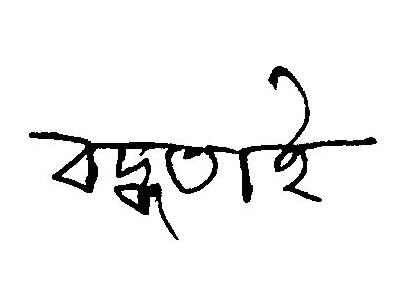 বদ্ধতাই